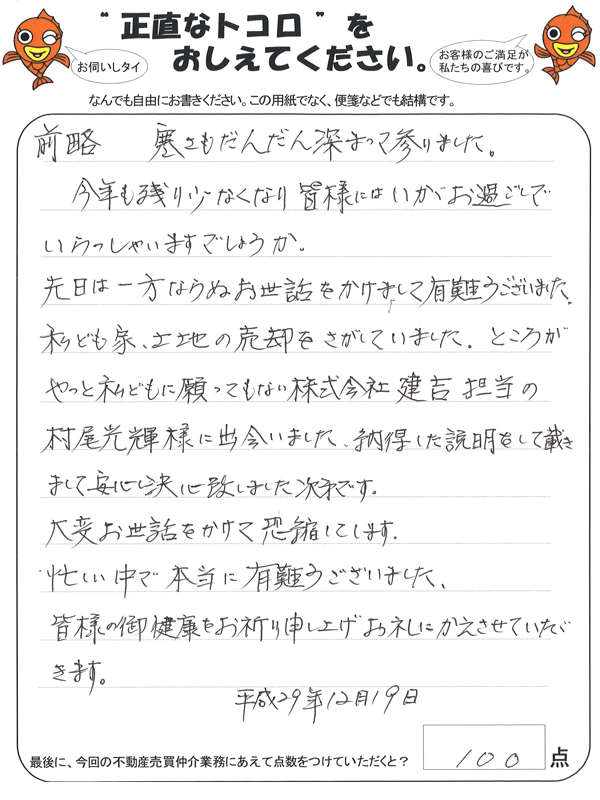 “正直なトコロ”を
おしえてください。
お伺いしタイ
お客様のご満足が
私たちの喜びです。
なんでも自由にお書きください。この用紙でなく、便箋などでも結構です。
前略 寒さもだんだん深まって参りました。
今年も残り少なくなり皆様にはいかがお過ごしで
いらっしゃいますでしょうか。
先日は一方ならぬお世話をかけまして有難うございました。
私ども家、土地の売却をさがしていました。ところが
やっと私どもに願ってもない株式会社 建吉 担当の
村尾光輝様に出会いました、納得した説明をして戴き
まして安心し決心致しました次第です。
大変お世話をかけて恐縮してします。
忙しい中で本当に有難うございました、
皆様の御健康をお祈り申し上げお礼にかえさせていただ
きます。
平成29年12月19日
最後に、今回の不動産売買仲介業務にあえて点数をつけていただくと?
100 点